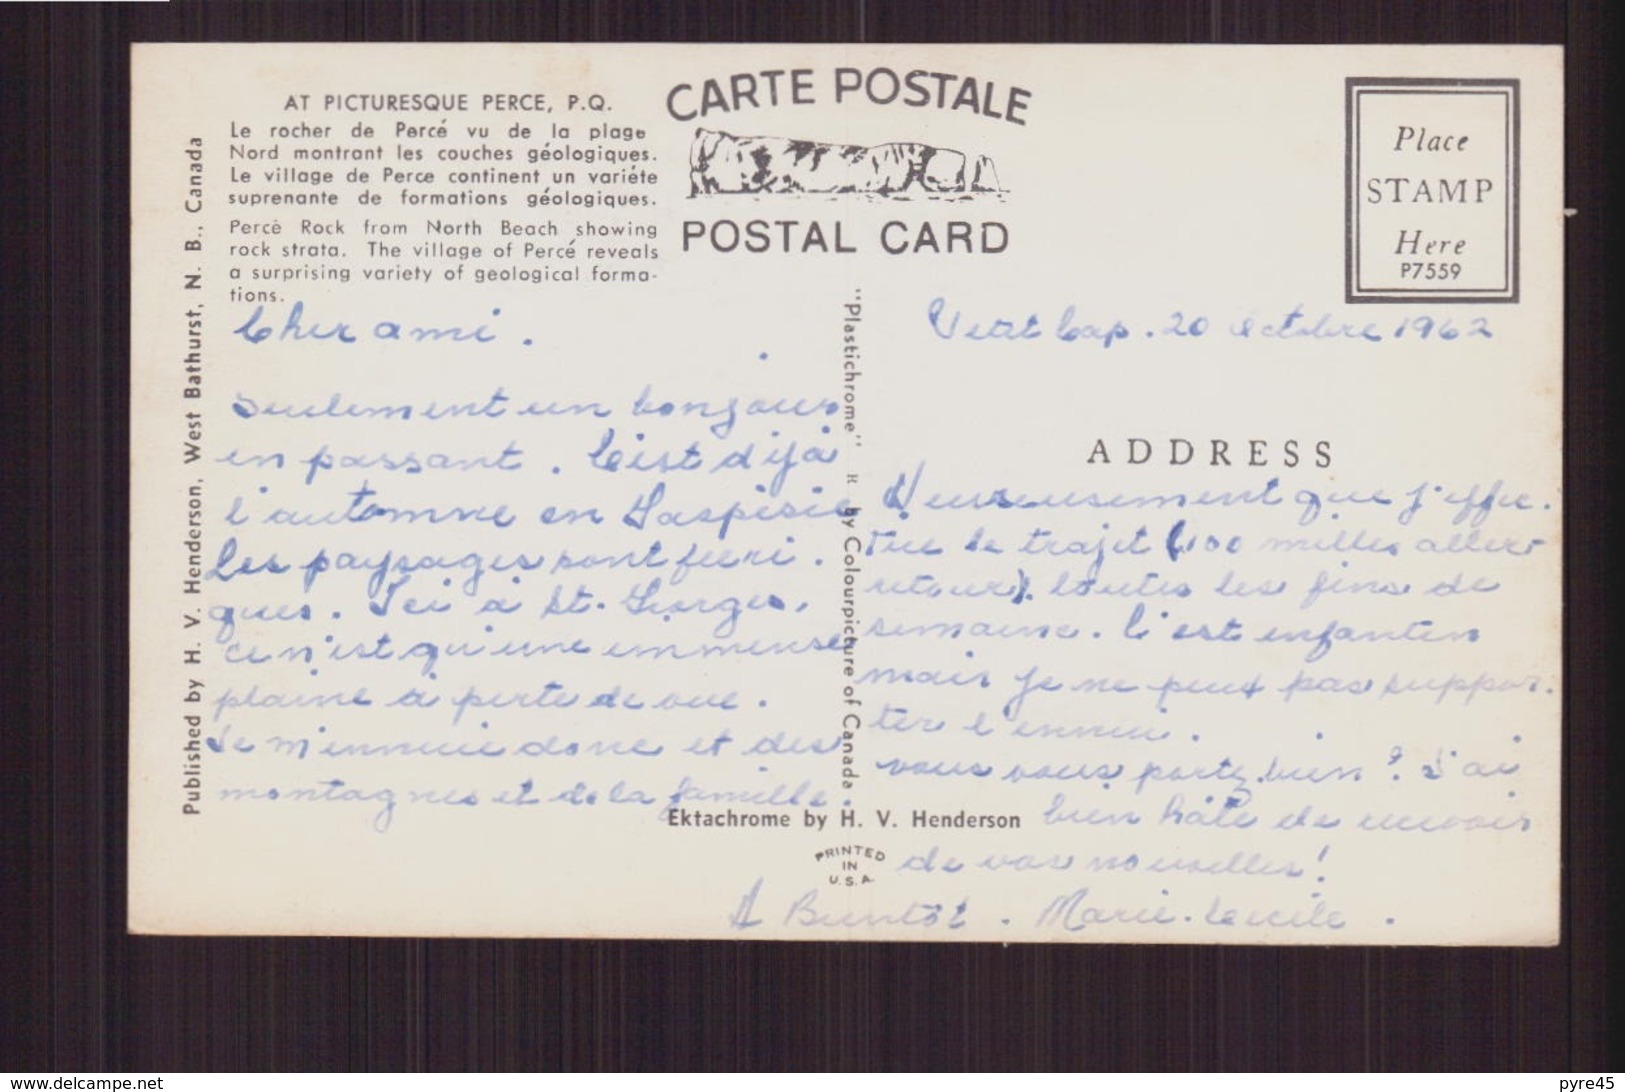 AT PICTURESQUE PERCE, P.Q.
Le rocher de Percé vu de la plage
Nord montrant les couches géologiques.
Le village de Perce continent un variéte
suprenante de formations géologiques.
Percè Rock from North Beach showing
rock strata. The village of Percé reveals
a surprising variety of geological forma-
tions.
CARTE POSTALE
POSTAL CARD
Place
STAMP
Here
P7559
Published by H. V. Henderson, West Bathurst, N. B., Canada
"Plastichrome" R by Colourpicture of Canada
Cher ami.
Seulement un bonjour
en passant. C'est déjà
l'automne en Gaspésie
Les paysages sont féeri.
ques. Ici à St. Georges,
ce n'est qu'une immense
plaine à perte de vue.
Je m'ennuie donc et des
montagnes et de la famille.
Petit Cap. 20 octobre 1962
ADDRESS
Heureusement que j'effec.
tue le trajet (100 milles aller
retour). toutes les fins de
semaine. C'est enfantin
mais je ne peux pas suppor.
ter l'ennui.
vous vous portez bien? J'ai
bien hâte de recevoir
de vos nouvelles!
A Bientôt. Marie-Cécile.
Ektachrome by H. V. Henderson
PRINTED
IN
U.S.A.
www.delcampe.net
pyre45